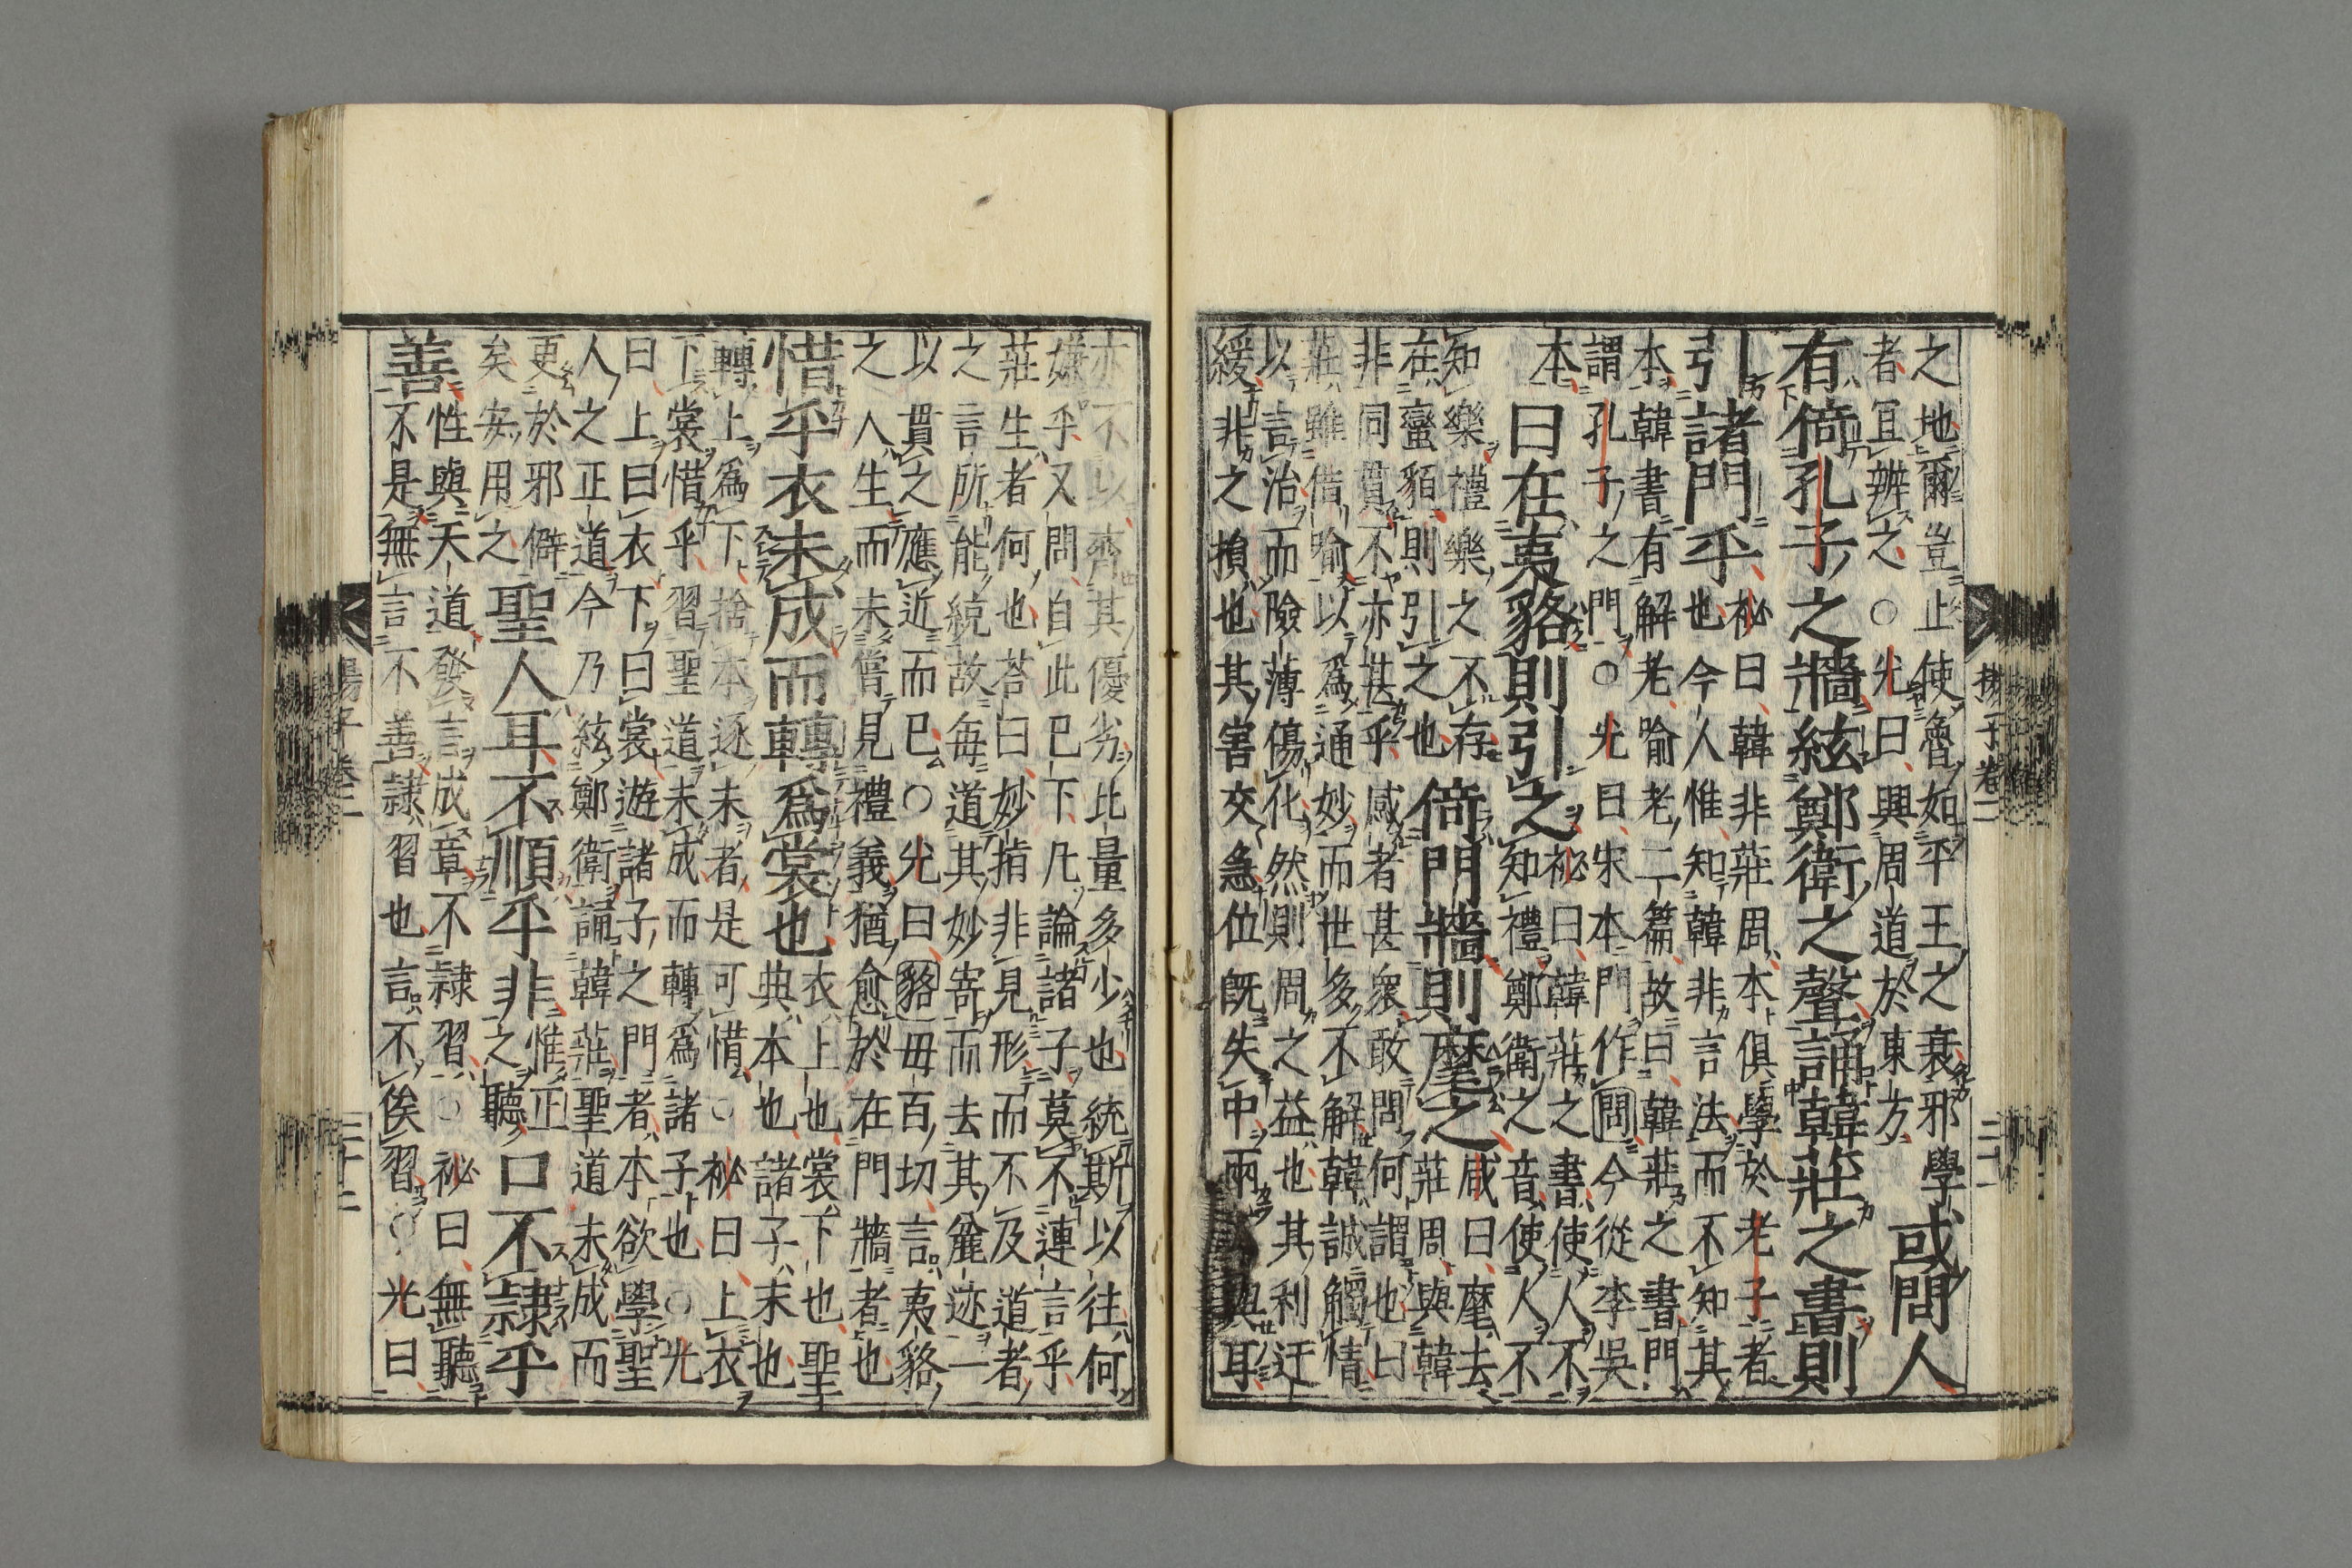 之地爾豈止使魯如平王之衰邪學
者冝辨之○光曰興周道於東方
或問人
有倚孔子之牆絃鄭衛之聲誦韓莊之書則
引諸門乎
祕曰韓非莊周本俱學於老子者
也今人惟知韓非言法而不知其
本韓書有解老喻老二篇故曰韓莊之書門
謂孔子之門○光曰宋本門作閤今從李吳
本
曰在夷貉則引之
祕曰韓莊之書使人不
知禮鄭衛之音使人不
知樂禮樂之不存
在蠻貊則引之也
倚門牆則麾之
咸曰麾去
莊周與韓
非同貫不亦甚乎咸者甚衆敢問何謂也曰
莊雖借喻以爲通妙而世多不解韓誠觸情
以言治而險薄傷化然則周之益也其利迂
緩非之損也其害交急位既失中兩與耳
揚子卷二
亦不以齊其優劣比量多少也統斯以往何
嫌乎又問自此巳下凡論諸子莫不連言乎
莊生者何也荅曰妙指非見形而不及道者
之言所能統故每道其妙寄而去其麤迹一
以貫之應近而巳○光曰貉毋百切言夷貉
之人生而未嘗見禮義猶愈於在門牆者也
惜乎衣未成而轉爲裳也
衣上也裳下也聖
典本也諸子末也
轉上爲下捨本逐末者是可惜○祕曰上衣
下裳惜乎習聖道未成而轉爲諸子也○光
曰上曰衣下曰裳遊諸子之門者本欲學聖
人之正道今乃絃鄭衛誦韓莊聖道未成而
更於邪僻
矣安用之
聖人耳不順乎非
惟正
之聽
口不隸乎
善
性與天道發言成章不隸習○祕曰無聽
不是無言不善隸習也言不俟習○光曰
揚子卷二